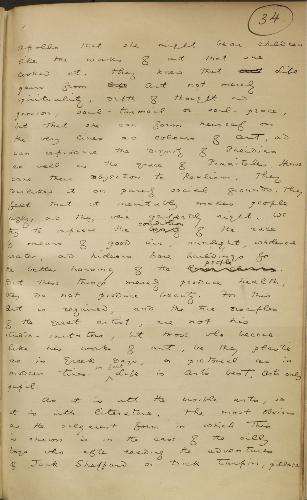 34
Apollo that she might bear children
like the works of art that she
looked at. They knew that Life
gains from Art not merely
spirituality, depth of thought and
passion, soul-turmoil or soul-peace,
but that she can form herself on
the very lines and colours of art, and
can reproduce the dignity of Pheidias
as well as the grace of Praxiteles. Hence
came their objection to Realism. They
disliked it on purely social grounds. They
felt that it inevitably makes people
ugly, and they were perfectly right. We
try to improve the conditions of the race
by means of good air, sunlight, wholesome
water, and hideous bare buildings for
the better housing of the people
But these things merely produce health,
they do not produce beauty. For this
Art is required, and the true disciples
of the great artist are not his
studio-imitators, but those who become
like his works of art, be they plastic
as in Greek days, or pictorial as in
modern times in fact Life is Art's best, Art's only
pupil.
As it is with the visible arts, so
it is with literature. The most obvious
and the vulgarest form in which this
is shown is in the case of the silly
boys who after reading the adventures
of Jack Sheppard or Dick Turpin, pillage